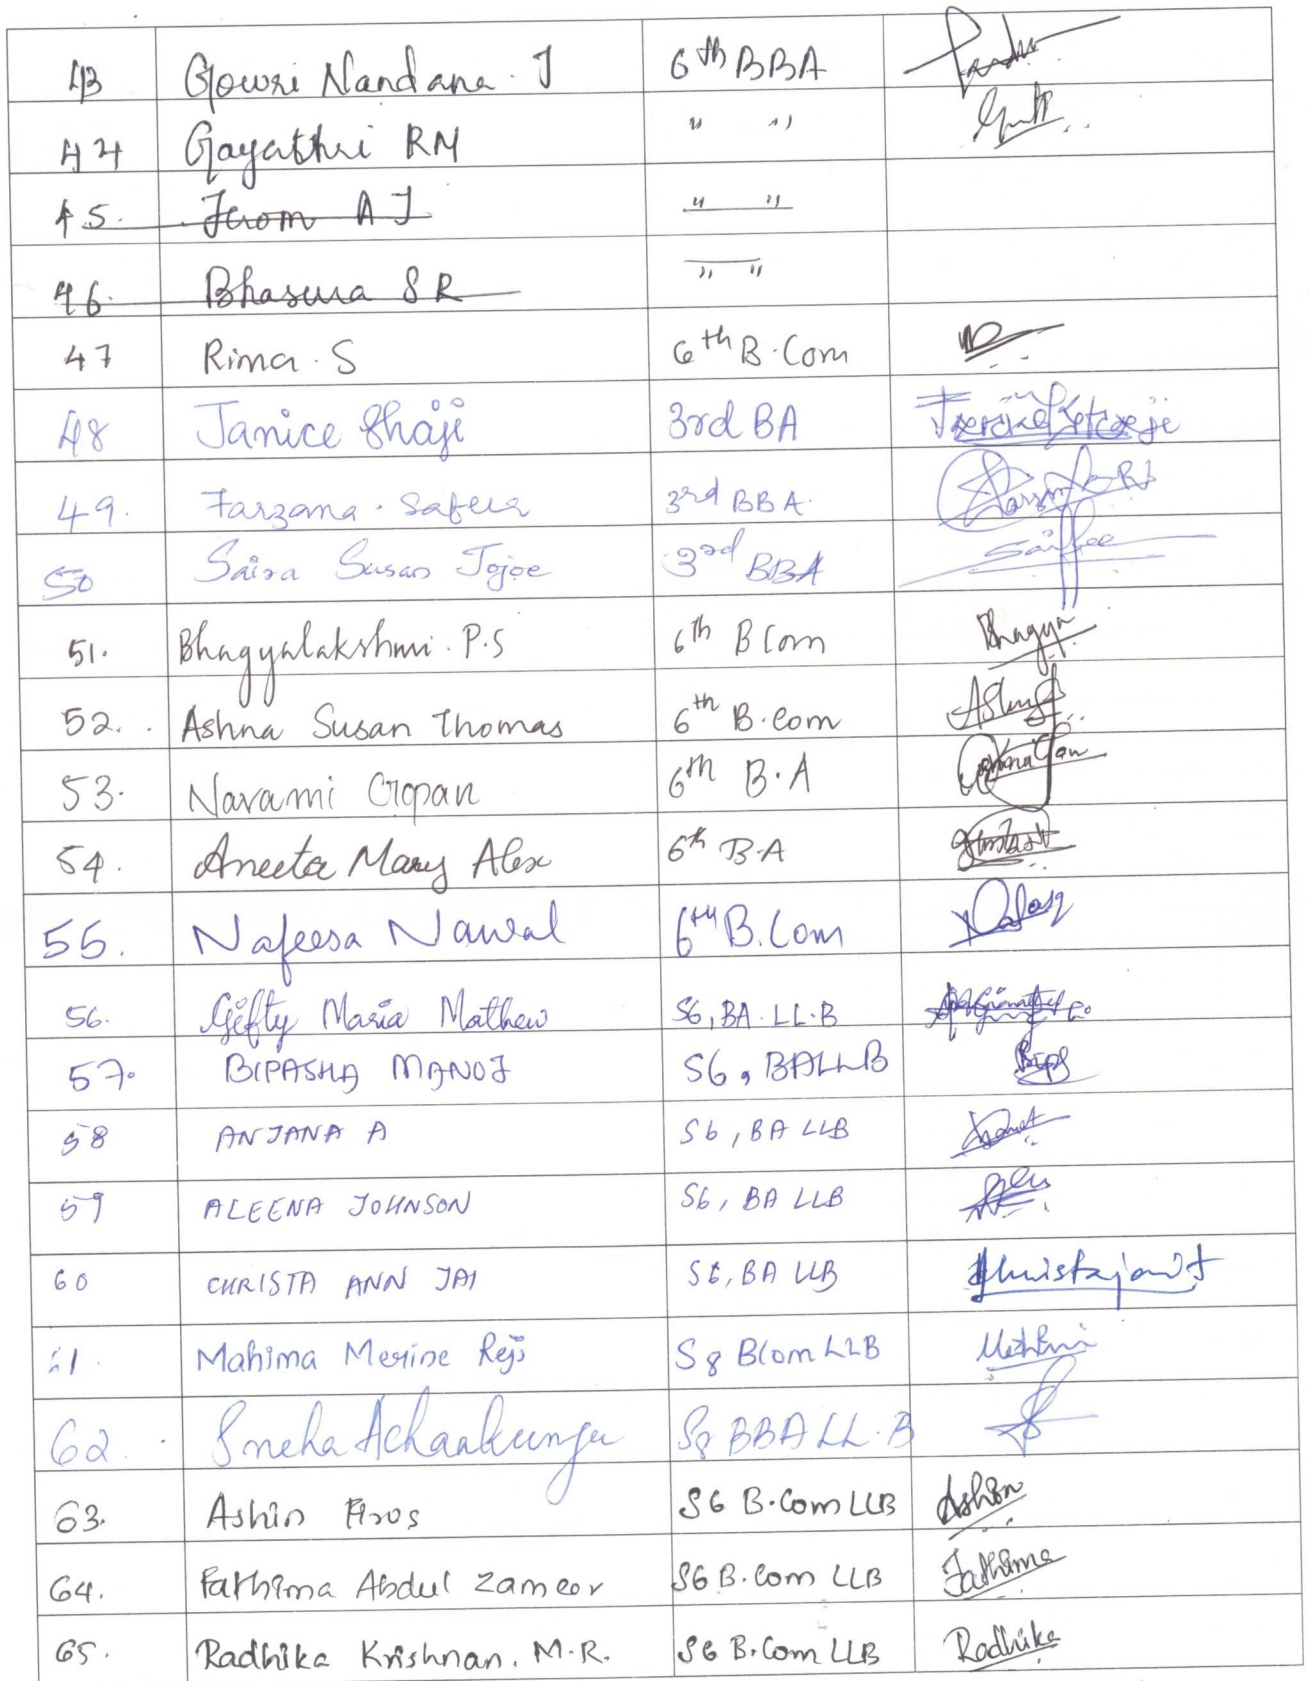 43 Gowri Nandana. J 6th BBA
44 Gayathri RM " "
45. Jerom A J " "
46. Bhasura S R " "
47 Rima. S 6th B.Com
48 Janice Shaji 3rd BA
49. Farzana. Safeer 3rd BBA.
50 Saira Susan Jojoe 3rd BBA
51. Bhagyalakshmi. P.S 6th BCom Bhagya
52. Ashna Susan Thomas 6th B.Com
53. Navami Gopan 6th B.A
54. Aneeta Mary Alex 6th B.A
55. Nafeesa Nawal 6th B.Com
56. Gifty Maria Mathew S6, BA.LL.B
57. BIPASHA MANOJ S6, BALLB
58 ANJANA A S6, BA LLB
59 ALEENA JOHNSON S6, BA LLB
60 CHRISTA ANN JAI S6, BA LLB
61. Mahima Merine Reji S8 BCom LLB
62. Sneha Achankunju S8 BBA LL.B
63. Ashin Firos S6 B.Com LLB Ashin
64. Fathima Abdul Zameer S6 B.Com LLB Fathima
65. Radhika Krishnan. M.R. S6 B.Com LLB Radhika